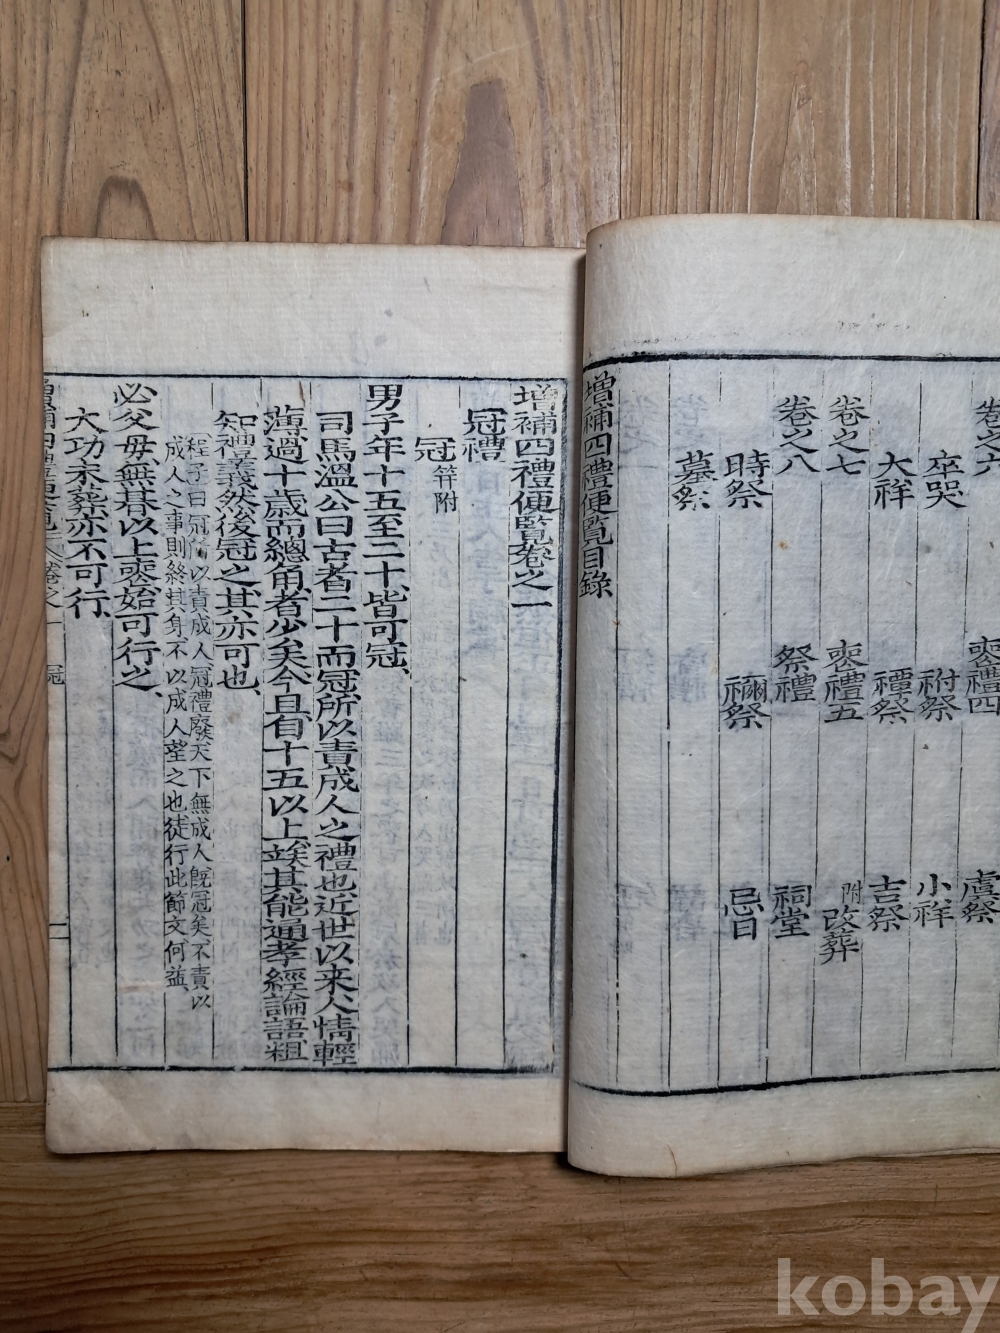 卷之六 喪禮四 虞祭
卒哭 祔祭 小祥
大祥 禫祭 吉祭
卷之七 喪禮五 附改葬
卷之八 祭禮 祠堂
時祭 禰祭 忌日
墓祭
增補四禮便覽目錄
增補四禮便覽卷之一
冠禮
冠 笄附
男子年十五至二十皆可冠、
司馬溫公曰古者二十而冠所以責成人之禮也近世以來人情輕
薄過十歲而總角者少矣今且自十五以上俟其能通孝經論語粗
知禮義然後冠之其亦可也、
程子曰冠禮廢天下無成人既冠矣不責以
成人之事則終其身不以成人望之也徒行此節文何益、
必父母無朞以上喪始可行之、
大功未葬亦不可行、
卷之一 冠 一
kobay